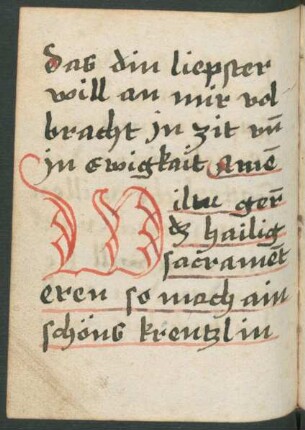 das din liepster
will an mir vol
bracht jn zit vn̄
jn ewigkait Amē
Wiltu gerē
dz hailig
sacramēt
eren so mach ain
schöns krentzlin